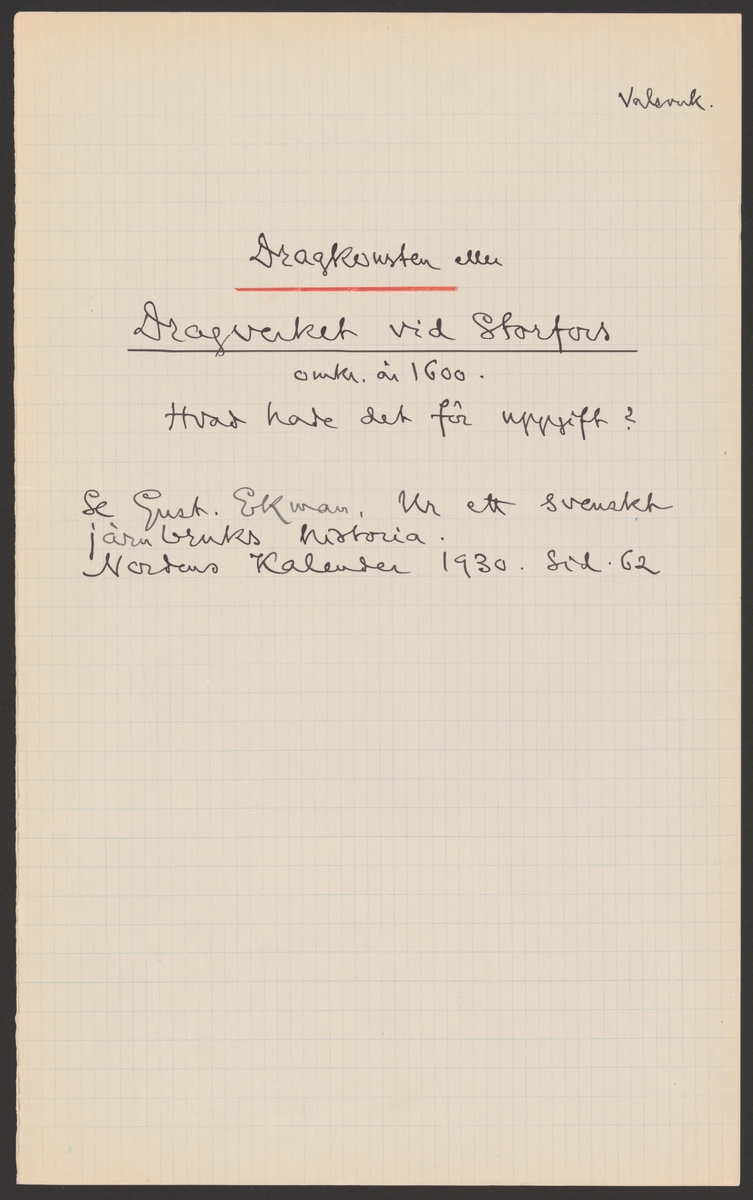 Valsverk.
Dragkonsten eller
Dragverket vid Storfors
omkr. år 1600.
Hvad hade det för uppgift?
Se Gust. Ekman, Ur ett svenskt
järnbruks historia.
Nordens Kalender 1930. Sid. 62